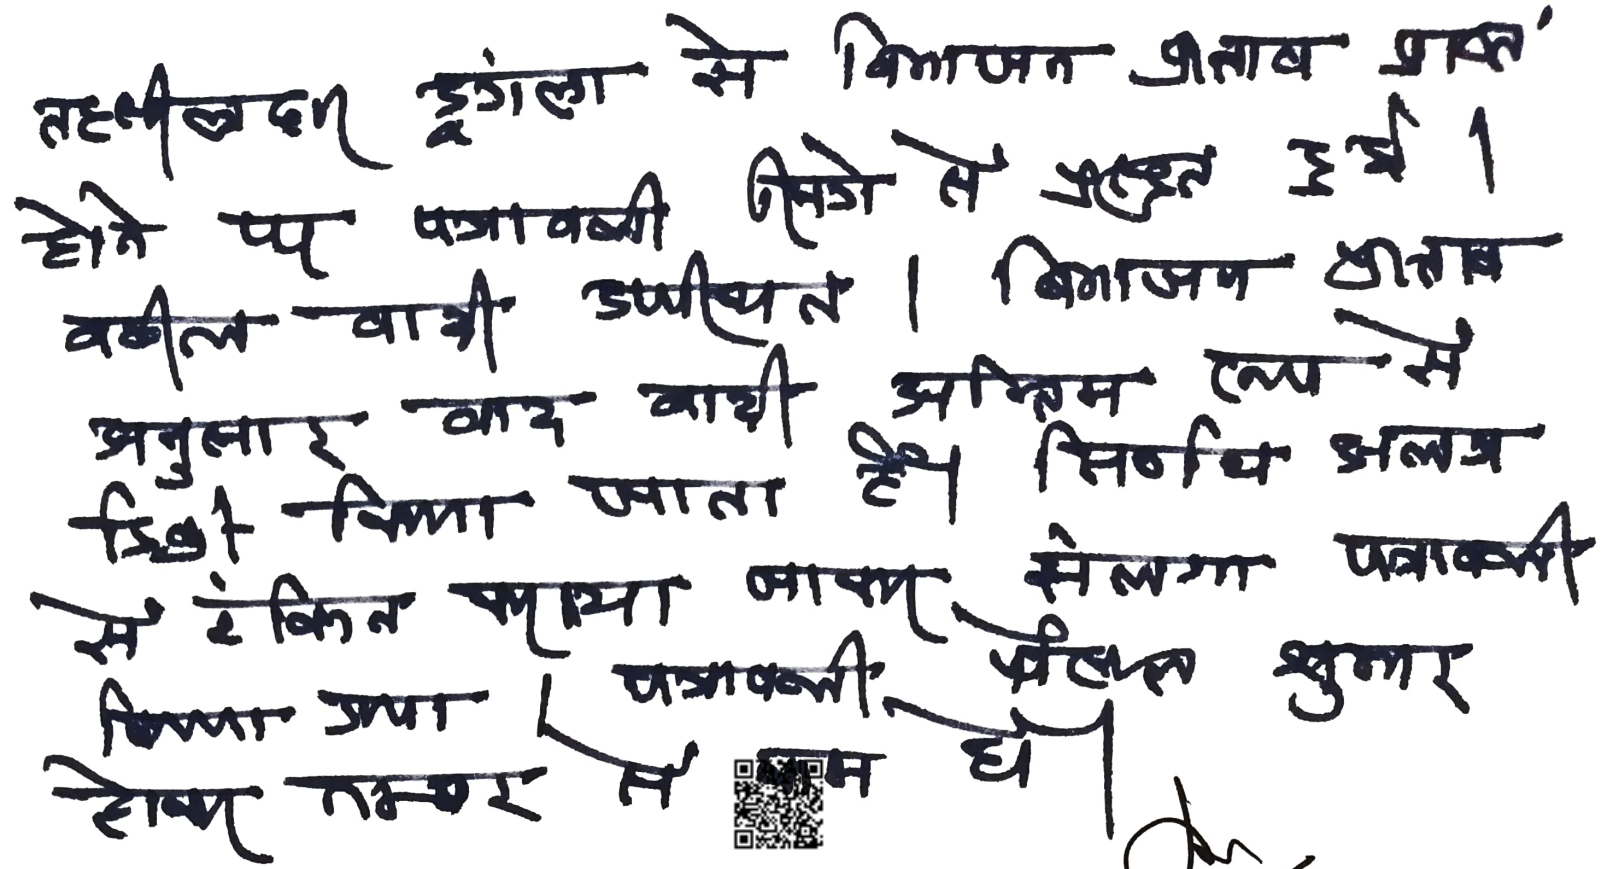 तहसीलदार डूंगला से विभाजन प्रस्ताव प्राप्त
होने पर पत्रावली पेशी में प्रस्तुत हुई ।
वकील वादी उपस्थित । विभाजन प्रस्ताव
अनुसार वाद वादी अन्तिम रूप से
डिक्री किया जाता है। निर्णय अलग
से टंकित कराया जाकर संलग्न पत्रावली
किया गया । पत्रावली फैसल शुमार
होकर नम्बर से कम हो।